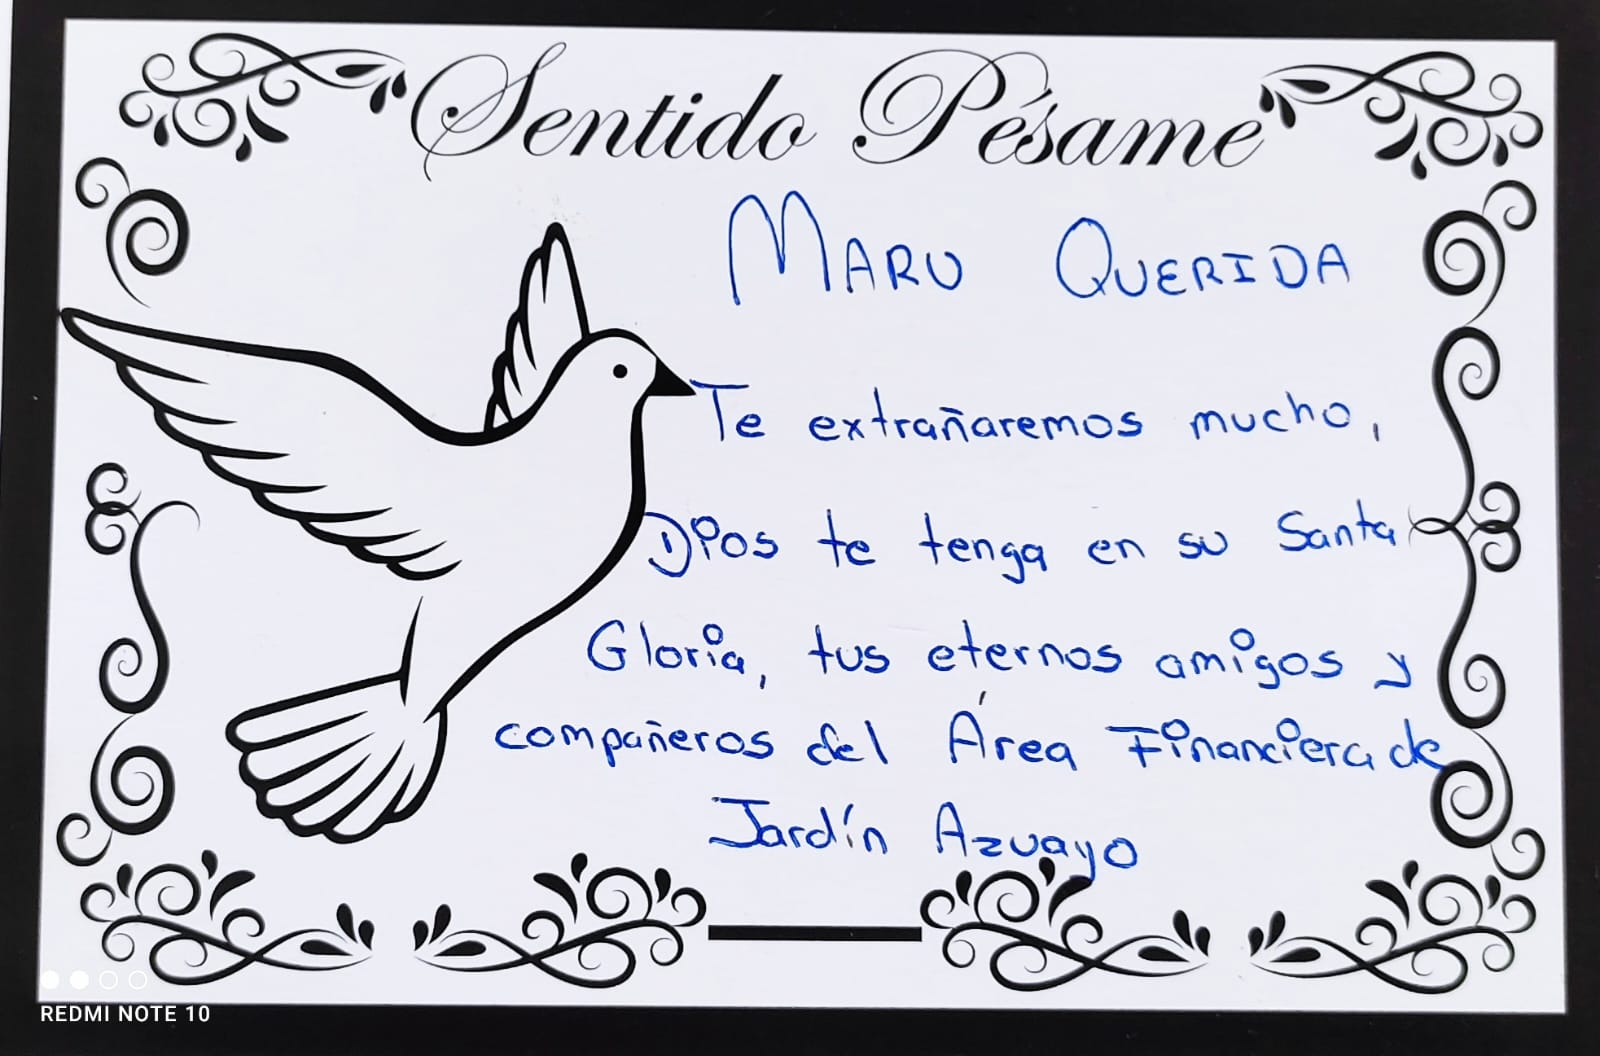 Sentido Pésame
MARU QUERIDA
Te extrañaremos mucho,
Dios te tenga en su Santa
Gloria, tus eternos amigos y
compañeros del Área Financiera de
Jardín Azuayo
REDMI NOTE 10